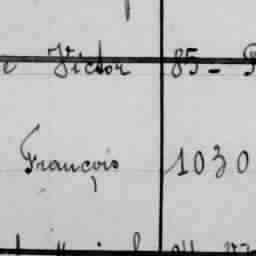 Victor 85-
François 1030